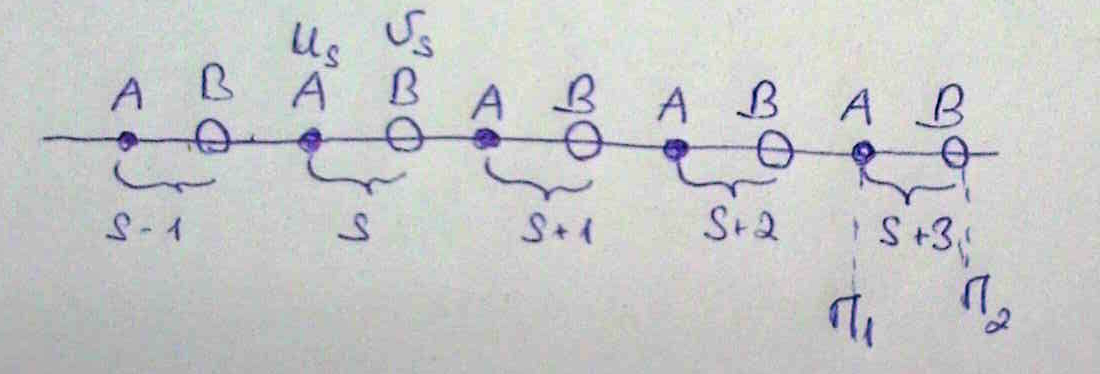 u_s v_s
A B A B A B A B A B
s-1 s s+1 s+2 s+3
П_1 П_2